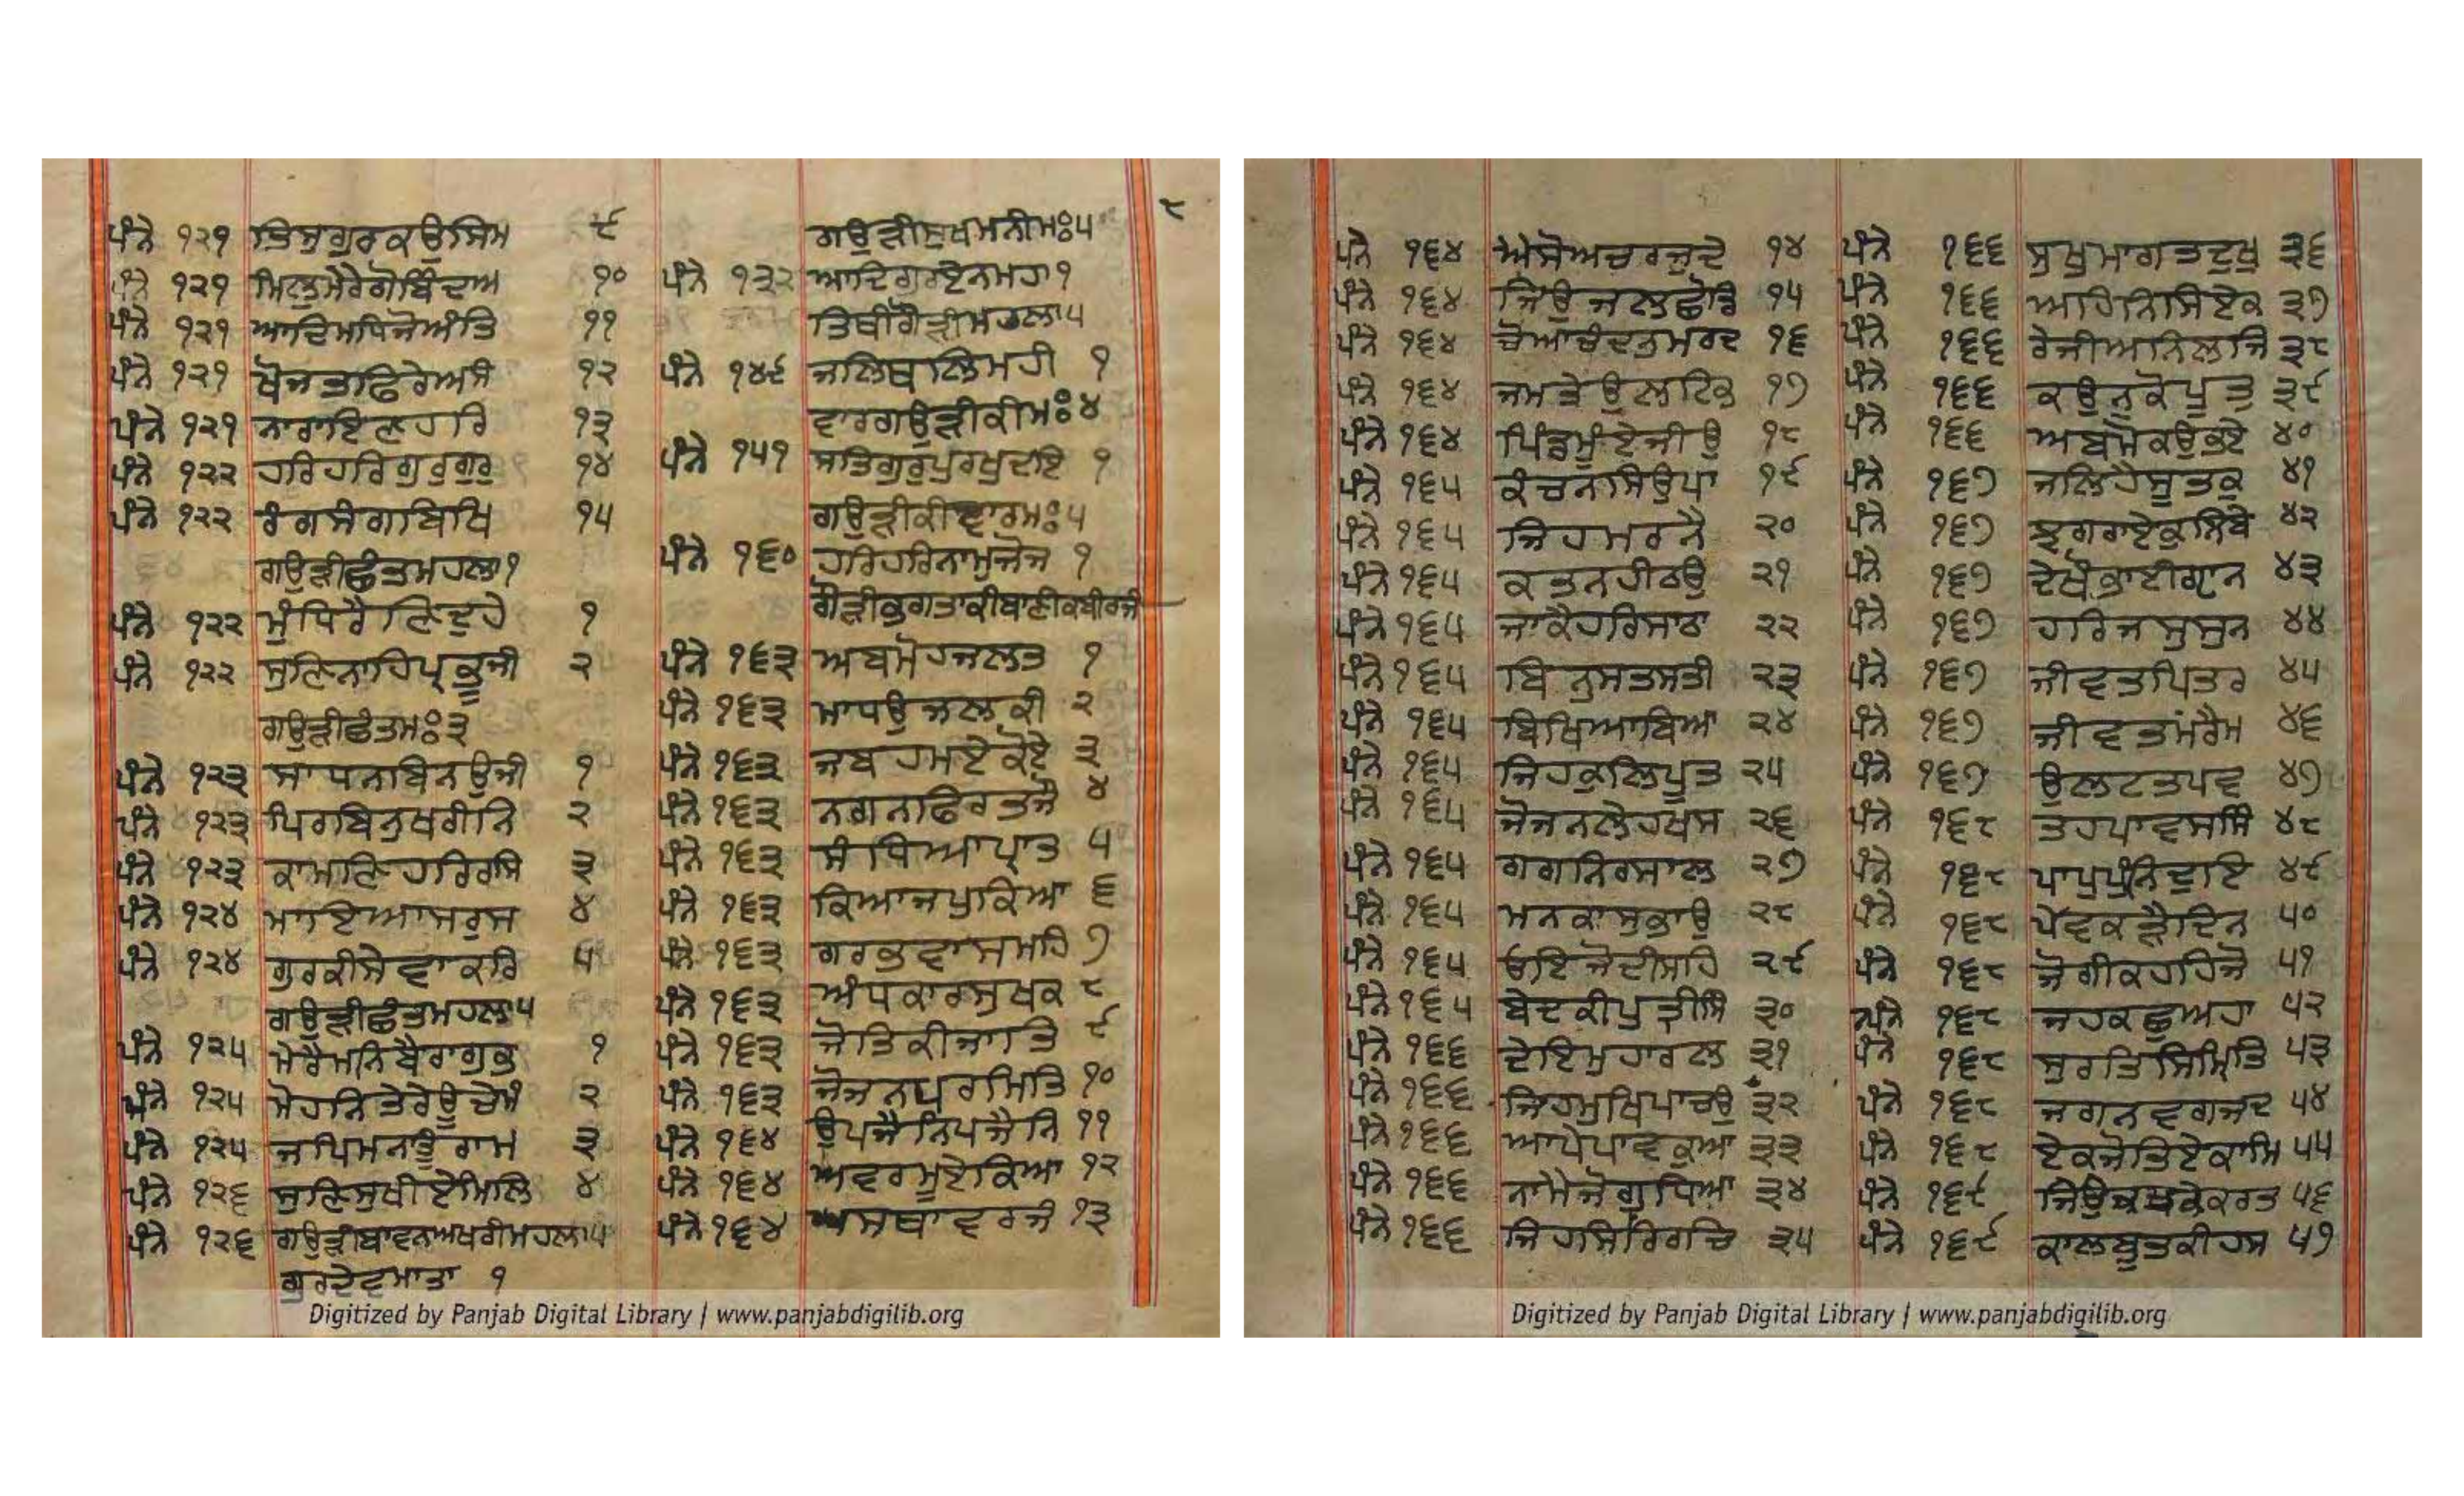 ੮
ਪੰਨੇ ੧੨੧ ਤਿਸੁਗੁਰਕਉਸਿਮ ੯
ਪੰਨੇ ੧੨੧ ਮਿਲੁਮੇਰੇਗੋਬਿੰਦਅ ੧੦
ਪੰਨੇ ੧੨੧ ਆਦਿਮਧਿਜੋਅੰਤਿ ੧੧
ਪੰਨੇ ੧੨੧ ਖੋਜਤਫਿਰੇਅਸੰ ੧੨
ਪੰਨੇ ੧੨੧ ਨਾਰਾਇਣਹਰਿ ੧੩
ਪੰਨੇ ੧੨੨ ਹਰਿਹਰਿਗੁਰੁਗੁਰੁ ੧੪
ਪੰਨੇ ੧੨੨ ਰੰਗਸੰਗਬਿਖਿ ੧੫
ਗਉੜੀਛੰਤਮਹਲਾ੧
ਪੰਨੇ ੧੨੨ ਮੁੰਧਿਰੈਣਿਦੁਹੇ ੧
ਪੰਨੇ ੧੨੨ ਸੁਣਿਨਾਹਿਪ੍ਰਭੂਜੀ ੨
ਗਉੜੀਛੰਤਮਃ੩
ਪੰਨੇ ੧੨੩ ਸਾਧਨਬਿਨਉਜੀ ੧
ਪੰਨੇ ੧੨੩ ਪਿਰਬਿਨੁਖਰੀਨਿ ੨
ਪੰਨੇ ੧੨੩ ਕਾਮਣਿਹਰਿਰਸਿ ੩
ਪੰਨੇ ੧੨੪ ਮਾਇਆਸਰੁਸ ੪
ਪੰਨੇ ੧੨੪ ਗੁਰਕੀਸੇਵਾਕਰਿ ੫
ਗਉੜੀਛੰਤਮਹਲਾ੫
ਪੰਨੇ ੧੨੫ ਮੇਰੈਮਨਿਬੈਰਾਗੁਭ ੧
ਪੰਨੇ ੧੨੫ ਮੋਹਨਿਤੇਰੇਊਚੇਮੰ ੨
ਪੰਨੇ ੧੨੫ ਜਪਿਮਨਤੂੰਰਾਮ ੩
ਪੰਨੇ ੧੨੬ ਸੁਣਿਸੁਖੀਏਮਿਲਿ ੪
ਪੰਨੇ ੧੨੬ ਗਉੜੀਬਾਵਨਅਖਰੀਮਹਲਾ੫
ਗੁਰਦੇਵਮਾਤਾ ੧
ਗਉੜੀਸੁਖਮਨੀਮਃ੫
ਪੰਨੇ ੧੩੨ ਆਦਿਗੁਰਏਨਮਹ੧
ਥਿਤੀਗੌੜੀਮਹਲਾ੫
ਪੰਨੇ ੧੪੯ ਜਲਿਥਲਿਮਹੀ ੧
ਵਾਰਗਉੜੀਕੀਮਃ੪
ਪੰਨੇ ੧੫੧ ਸਤਿਗੁਰੁਪੁਰਖੁਦਇ ੧
ਗਉੜੀਕੀਵਾਰਮਃ੫
ਪੰਨੇ ੧੬੦ ਹਰਿਹਰਿਨਾਮੁਜੋਜ ੧
ਗੌੜੀਭਗਤਾਕੀਬਾਣੀਕਬੀਰਜੀ
ਪੰਨੇ ੧੬੩ ਅਬਮੋਹਜਲਤ ੧
ਪੰਨੇ ੧੬੩ ਮਾਧਉਜਲਕੀ ੨
ਪੰਨੇ ੧੬੩ ਜਬਹਮਏਕੋਏ ੩
ਪੰਨੇ ੧੬੩ ਨਗਨਫਿਰਤਜੌ ੪
ਪੰਨੇ ੧੬੩ ਸੰਧਿਆਪ੍ਰਾਤ ੫
ਪੰਨੇ ੧੬੩ ਕਿਆਜਪੁਕਿਆ ੬
ਪੰਨੇ ੧੬੩ ਗਰਭਵਾਸਮਹਿ ੭
ਪੰਨੇ ੧੬੩ ਅੰਧਕਾਰਸੁਖਕ ੮
ਪੰਨੇ ੧੬੩ ਜੋਤਿਕੀਜਾਤਿ ੯
ਪੰਨੇ ੧੬੩ ਜੋਜਨਪਰਮਿਤਿ ੧੦
ਪੰਨੇ ੧੬੪ ਉਪਜੈਨਿਪਜੈਨਿ ੧੧
ਪੰਨੇ ੧੬੪ ਅਵਰਮੂਏਕਿਆ ੧੨
ਪੰਨੇ ੧੬੪ ਅਸਥਾਵਰਜੰ ੧੩
Digitized by Panjab Digital Library | www.panjabdigilib.org
ਪੰਨੇ ੧੬੪ ਐਸੋਅਚਰਜੁਦੇ ੧੪
ਪੰਨੇ ੧੬੪ ਜਿਉਜਲਛੋਡਿ ੧੫
ਪੰਨੇ ੧੬੪ ਚੋਆਚੰਦਨੁਮਰਦ ੧੬
ਪੰਨੇ ੧੬੪ ਜਮਤੇਉਲਟਿਭ ੧੭
ਪੰਨੇ ੧੬੪ ਪਿੰਡਮੂੰਏਜੀਉ ੧੮
ਪੰਨੇ ੧੬੫ ਕੰਚਨਸਿਉਪਾ ੧੯
ਪੰਨੇ ੧੬੫ ਜਿਹਮਰਨੈ ੨੦
ਪੰਨੇ ੧੬੫ ਕਤਨਹੀਠਉ ੨੧
ਪੰਨੇ ੧੬੫ ਜਾਕੈਹਰਿਸਾਠਾ ੨੨
ਪੰਨੇ ੧੬੫ ਬਿਨੁਸਤਸਤੀ ੨੩
ਪੰਨੇ ੧੬੫ ਬਿਖਿਆਬਿਆ ੨੪
ਪੰਨੇ ੧੬੫ ਜਿਹਕੁਲਿਪੂਤ ੨੫
ਪੰਨੇ ੧੬੫ ਜੋਜਨਲੇਹਖਸ ੨੬
ਪੰਨੇ ੧੬੫ ਗਗਨਿਰਸਾਲ ੨੭
ਪੰਨੇ ੧੬੫ ਮਨਕਾਸੁਭਾਉ ੨੮
ਪੰਨੇ ੧੬੫ ਓਇਜੋਦੀਸਹਿ ੨੯
ਪੰਨੇ ੧੬੫ ਬੇਦਕੀਪੁਤ੍ਰੀਸਿੰ ੩੦
ਪੰਨੇ ੧੬੬ ਦੇਇਮੁਹਾਰਲ ੩੧
ਪੰਨੇ ੧੬੬ ਜਿਹਮੁਖਿਪਾਚਉ ੩੨
ਪੰਨੇ ੧੬੬ ਆਪੇਪਾਵਕੁਆ ੩੩
ਪੰਨੇ ੧੬੬ ਨਾਮੈਜੋਗੁਧਿਆ ੩੪
ਪੰਨੇ ੧੬੬ ਜਿਹਸਿਰਿਰਚਿ ੩੫
ਪੰਨੇ ੧੬੬ ਸੁਖੁਮਾਗਤਦੁਖੁ ੩੬
ਪੰਨੇ ੧੬੬ ਅਹਿਨਿਸਿਏਕ ੩੭
ਪੰਨੇ ੧੬੬ ਰੇਜੀਅਨਿਲਜਿ ੩੮
ਪੰਨੇ ੧੬੬ ਕਉਨੁਕੋਪੂਤੁ ੩੯
ਪੰਨੇ ੧੬੬ ਅਬਮੋਕਉਭਏ ੪੦
ਪੰਨੇ ੧੬੭ ਜਲਿਹੈਸੂਤਕੁ ੪੧
ਪੰਨੇ ੧੬੭ ਝਗਰਾਏਕੁਨਿਬੇ ੪੨
ਪੰਨੇ ੧੬੭ ਦੇਖੌਭਾਈਗ੍ਯਾਨ ੪੩
ਪੰਨੇ ੧੬੭ ਹਰਿਜਸੁਸੁਨ ੪੪
ਪੰਨੇ ੧੬੭ ਜੀਵਤਪਿਤਰ ੪੫
ਪੰਨੇ ੧੬੭ ਜੀਵਤਮਰੈਮ ੪੬
ਪੰਨੇ ੧੬੭ ਉਲਟਤਪਵ ੪੭
ਪੰਨੇ ੧੬੮ ਤਹਪਾਵਸਸਿੰ ੪੮
ਪੰਨੇ ੧੬੮ ਪਾਪੁਪੁੰਨਿਦੁਇ ੪੯
ਪੰਨੇ ੧੬੮ ਪੇਵਕੜੈਦਿਨ ੫੦
ਪੰਨੇ ੧੬੮ ਜੋਗੀਕਹਹਿਜੋ ੫੧
ਪੰਨੇ ੧੬੮ ਜਹਕਛੁਅਹਾ ੫੨
ਪੰਨੇ ੧੬੮ ਸੁਰਤਿਸਿਮ੍ਰਿਤਿ ੫੩
ਪੰਨੇ ੧੬੮ ਜਗਨਵਗਜਦ ੫੪
ਪੰਨੇ ੧੬੮ ਏਕਜੋਤਿਏਕਾਮਿ ੫੫
ਪੰਨੇ ੧੬੯ ਜੇਉਕਪਕੇਕਰਤ ੫੬
ਪੰਨੇ ੧੬੯ ਕਾਲਬੂਤਕੀਹਸ ੫੭
Digitized by Panjab Digital Library | www.panjabdigilib.org